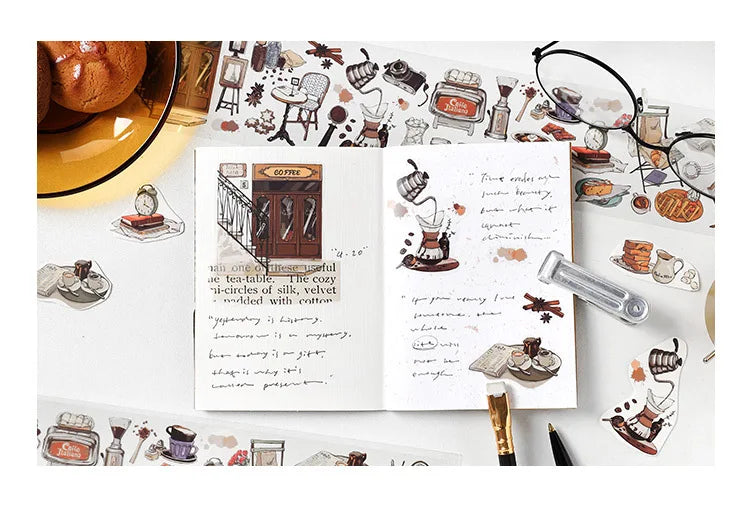 Caffe
Italiano
COFFEE
"4.20"
nan one of these useful
ue tea-table. The cozy
ni-circles of silk, velvet
padded with cotton
"yesterday is history.
tomorrow is a mystery.
but today is a gift.
that is why it's
called present."
"Time erodes all
such beauty
but what it
cannot
diminish
"If you really love
someone, the
whole
life will
not be
enough.
Italiano